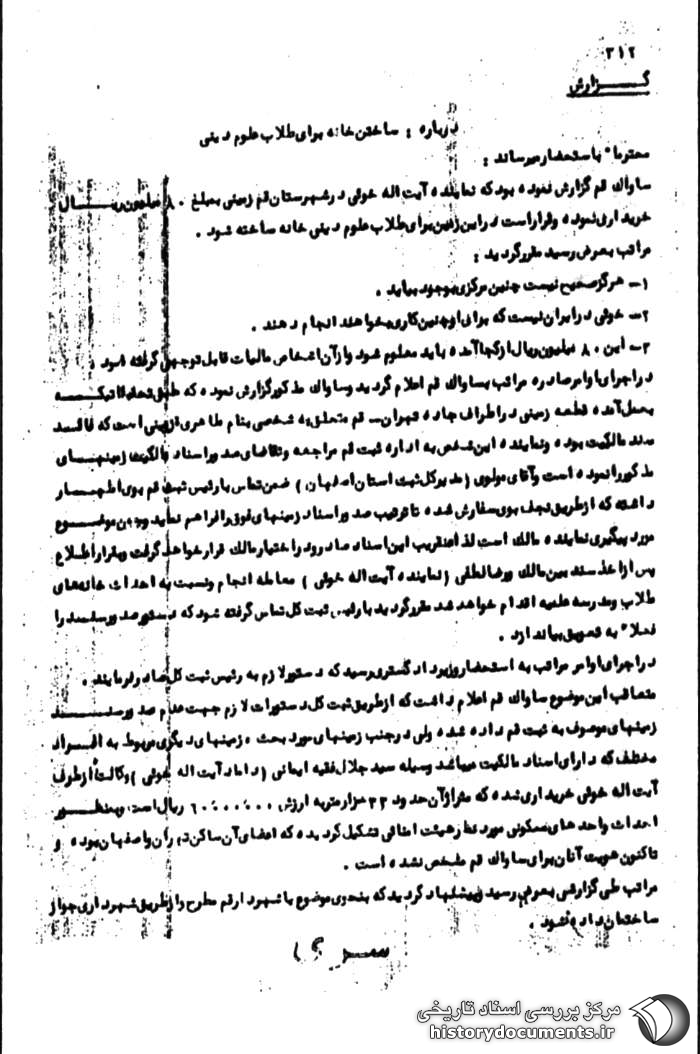 ۳۱۲
گــــزارش
درباره : ساختن خانه برای طلاب علوم دینی
محترما" باستحضار میرساند :
ساواك قم گزارش نموده بود که نماینده آیت اله خوئی در شهرستان قم زمینی بمبلغ ۸۰ میلیون ریــــال
خریداری نموده و قرار است در این زمین برای طلاب علوم دینی خانه ساخته شود .
مراتب بعرض رسید مقرر گردید :
۱- هرگز صحیح نیست چنین مرکزی بوجود بیاید .
۲- خوئی در ایران نیست که برای او چنین کاری بخواهند انجام دهند .
۳- این ۸۰ میلیون ریال از کجا آمده باید معلوم شود و از آن اشخاص مالیات قابل توجهی گرفته شود .
در اجرای اوامر صادره مراتب بساواك قم اعلام گردید و ساواك مذکور گزارش نموده که طبق تحقیقاتیکــه
بعمل آمده قطعه زمینی در اطراف جاده تهران - قم متعلق به شخصی بنام طاهری قزوینی است که فاقــد
سند مالکیت بوده و نماینده این شخص به اداره ثبت قم مراجعه و تقاضای صدور اسناد مالکیت زمینهــای
مذکور را نموده است و آقای مولوی ( مدیر کل ثبت استان اصفهان ) ضمن تماس با رئیس ثبت قم بوی اظهــار
داشته که از طریق نجف بوی سفارش شده تا ترتیب صدور اسناد زمینهای فوق را فراهم نماید و چون موضــوع
مورد پیگیری نماینده مالك است لذا عنقریب این اسناد صادر و در اختیار مالك قرار خواهد گرفت و بقرار اطلاع
پس از اخذ سند بین مالك و رضا لطفی ( نماینده آیت اله خوئی ) معامله انجام و نسبت به احداث خانه های
طلاب و مدرسه علمیه اقدام خواهد شد مقرر گردید با رئیس ثبت کل تماس گرفته شود که دستور صدور سند را
فعلا" به تعویق بیاندازد .
در اجرای اوامر مراتب به استحضار وزیر دادگستری رسید که دستور لازم به رئیس ثبت کل صادر فرمایند .
متعاقب این موضوع ساواك قم اعلام داشت که از طریق ثبت کل دستورات لازم جهت عدم صدور ســنــد
زمینهای موصوف به ثبت قم داده شده ولی در جنب زمینهای مورد بحث ، زمینهای دیگری مربوط به افــراد
مختلف که دارای اسناد مالکیت میباشد وسیله سید جلال فقیه ایمانی ( داماد آیت اله خوئی ) وکالتاً از طرف
آیت اله خوئی خریداری شده که متراژ آن حدود ۳۳ هزار متر به ارزش ریال است و بمنظــور
احداث واحدهای مسکونی مورد نظر هیئت امنائی تشکیل گردیده که اعضای آن ساکن تهران و اصفهان بوده و
تاکنون هویت آنان برای ساواك قم مشخص نشده است .
مراتب طی گزارشی بعرض رسید و پیشنهاد گردید که بنحوی موضوع با شهردار قم مطرح و از طریق شهرداری جواز
ساختمان داده نشود .
مرکز بررسی اسناد تاریخی
historydocuments.ir